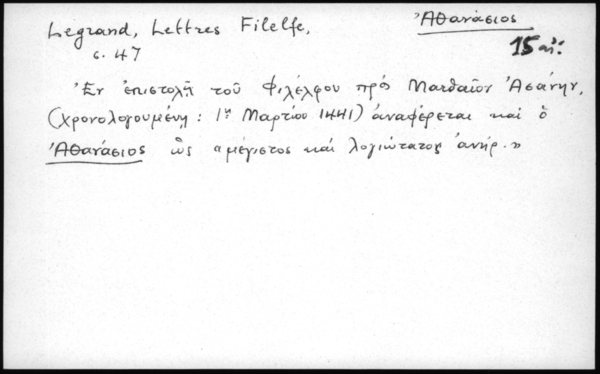 Legrand, Lettres Filelfe,
Ἀθανάσιος
c. 47
15 αἰ:
Ἐν ἐπιστολῇ τοῦ Φιλέλφου πρὸς Ματθαῖον Ἀσάνην,
(χρονολογουμένῃ: 1ῃ Μαρτίου 1441) ἀναφέρεται καὶ ὁ
Ἀθανάσιος ὡς «μέγιστος καὶ λογιώτατος ἀνήρ.»